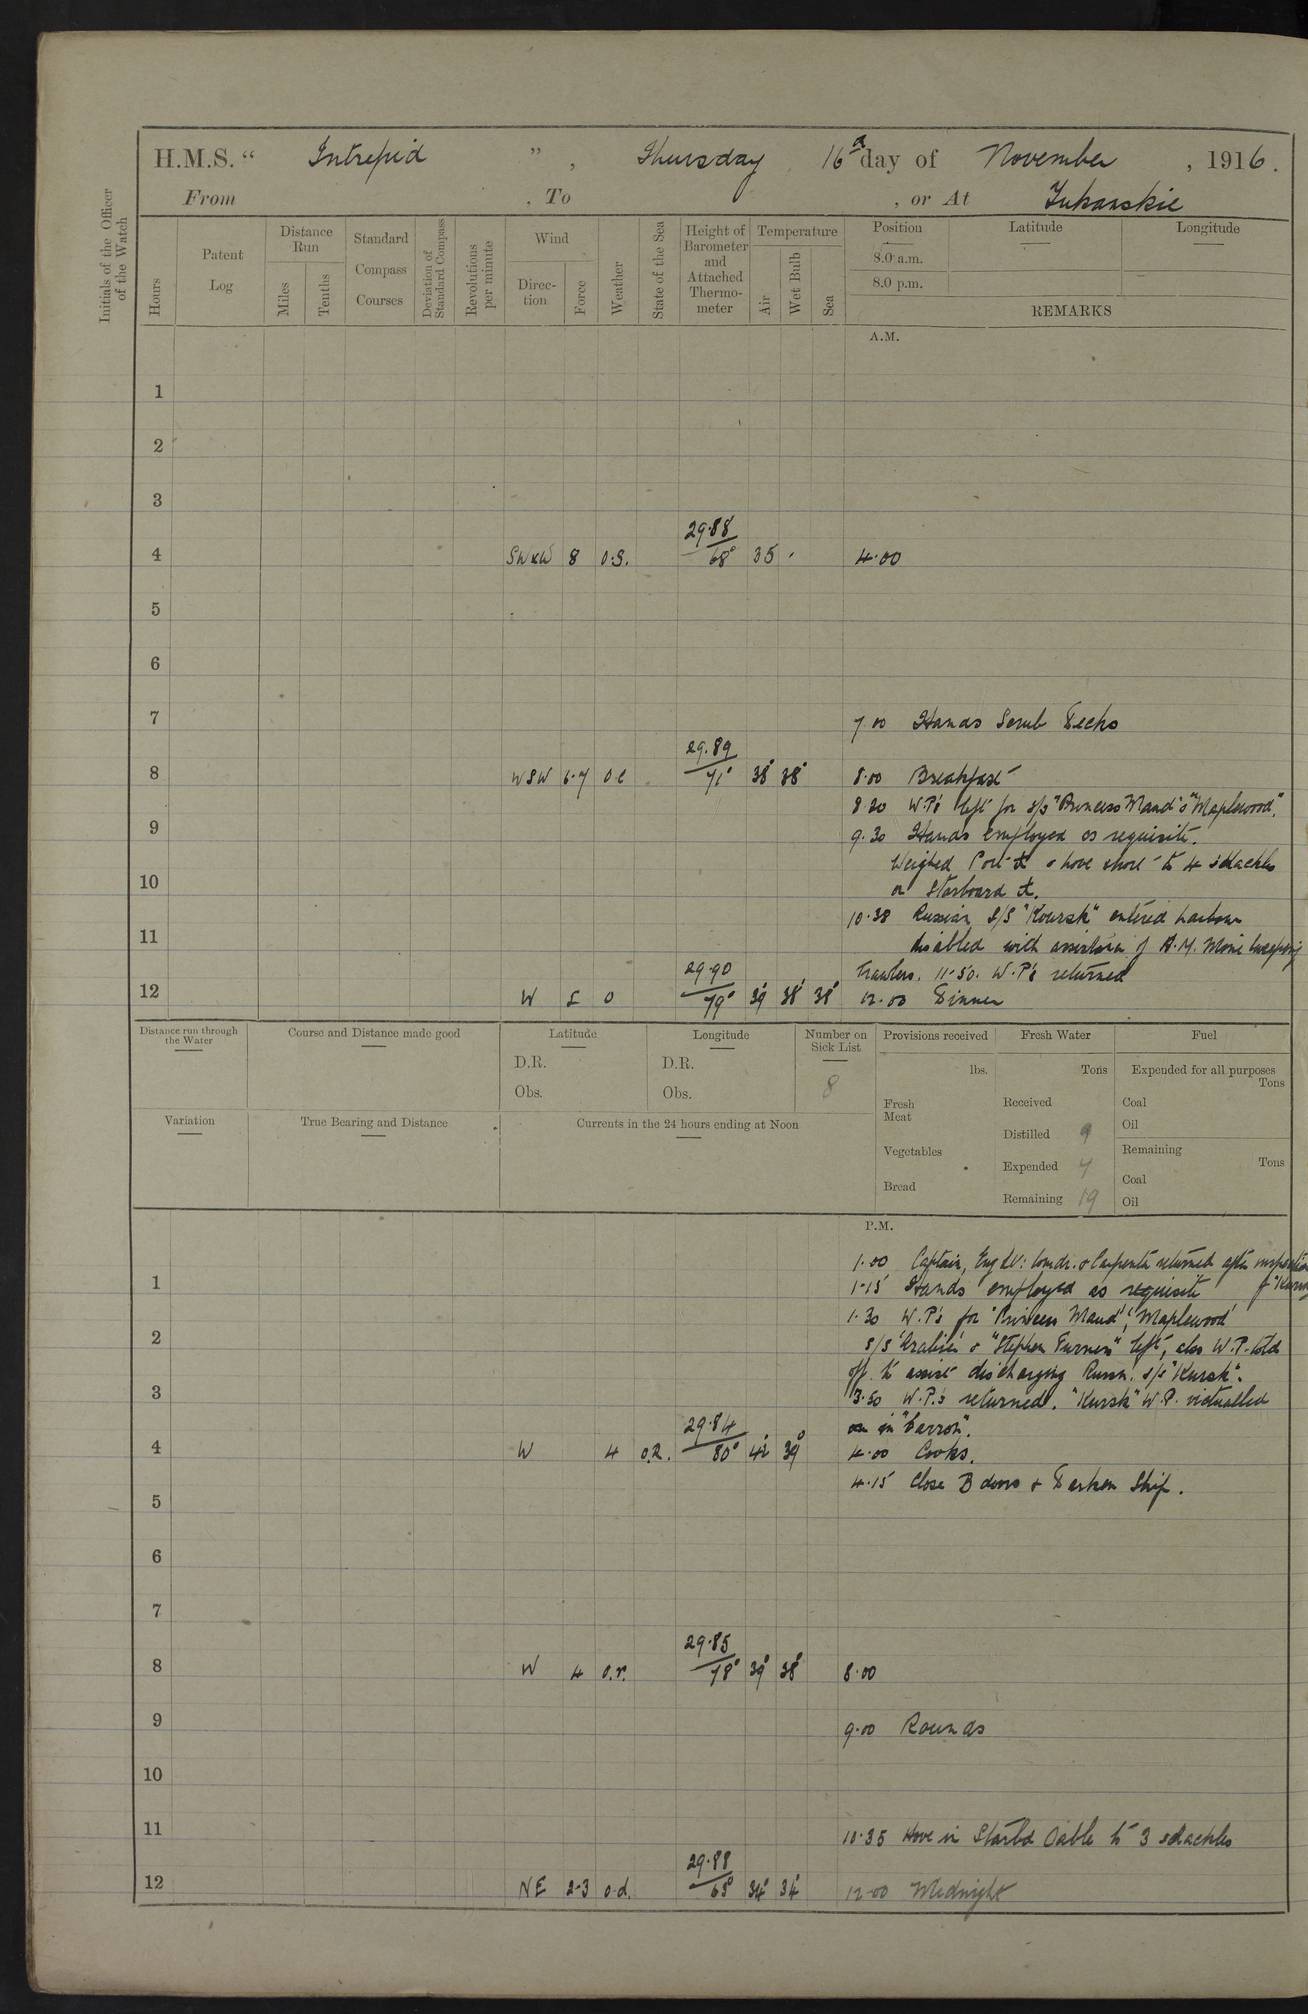 H.M.S. “ Intrepid ” , Thursday 16th day of November , 1916.
From , To , or At Yukanskie
Initials of the Officer of the Watch
Hours
Patent Log
Distance Run
Miles
Tenths
Standard Compass Courses
Deviation of Standard Compass
Revolutions per minute
Wind
Direction
Force
Weather
State of the Sea
Height of Barometer and Attached Thermometer
Temperature
Air
Wet Bulb
Sea
Position Latitude Longitude
8.0 a.m.
8.0 p.m.
REMARKS
A.M.
1
2
3
29.88
4 SWxW 8 o.s. 68° 35 4.00
5
6
7 7.00 Hands Scrub Decks
29.89
8 WSW 6-7 o.c 71° 38° 38° 8.00 Breakfast
8.20 W.P's left for s/s "Princess Maud" & "Maplewood".
9 9.30 Hands employed as requisite.
Weighed Port ⚓ & hove short to 4 shackles
10 on Starboard ⚓.
10.38 Russian S/S "Koursk" entered harbour
11 disabled with assistance of A.M. Mine Sweeping
29.90 Trawlers. 11-50. W.P's returned
12 W 5 o 79° 39° 38° 38° 12.00 Dinner
Distance run through the Water
Course and Distance made good
Latitude
D.R.
Obs.
Longitude
D.R.
Obs.
Number on Sick List
8
Provisions received
lbs.
Fresh Meat
Vegetables
Bread
Fresh Water
Tons
Received
Distilled 9
Expended 7
Remaining 19
Fuel
Expended for all purposes
Tons
Coal
Oil
Remaining
Tons
Coal
Oil
Variation
True Bearing and Distance
Currents in the 24 hours ending at Noon
P.M.
1.00 Captain, Eng Lt: Comdr. & Carpenter returned after inspection
1 1-15 Hands employed as requisite of "Kursk"
1.30 W.P's for "Princess Maud", "Maplewood"
2 S/S "Stephen Furness" left, also W.P. told
off to assist discharging Russn. s/s "Kursk".
3 3.50 W.P.'s returned. "Kursk" W.P. victualled
29.84 in "Carron".
4 W 4 o.R. 80° 42° 39° 4.00 Cooks.
4.15 Close B doors & Darken Ship.
5
6
7
29.85
8 W 4 o.r. 78° 39° 38° 8.00
9 9.00 Rounds
10
11 10.35 Hove in Starbd Cable to 3 shackles
29.88
12 NE 2-3 o.d. 34° 34° 12.00 Midnight